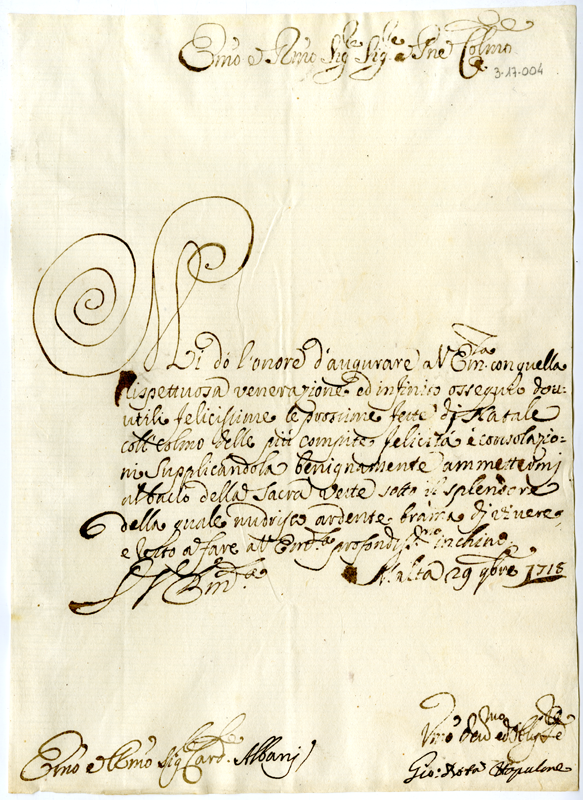 Emo e Rmo Sig.re Sig.re e Pne Colmo
3.17.004
Mi dò l'onore d'augurare a V. Em.za con quella
rispettuosa venerazione ed infinito ossequio dou=
utili felicissime le prossime feste di Natale
coll'colmo delle più compite felicità e consolazio=
ni supplicandola benignamente ammettermi
al bacio della Sacra Veste sotto il splendore
della quale nudrisco ardente brama di viuere
e resto a fare a V. Em.za profondiss.mo inchino
D V Em.za Malta 29 9bre 1718
Emo e Rmo Sig.re Card. Albani
Vmo Deumo ed
Gio: